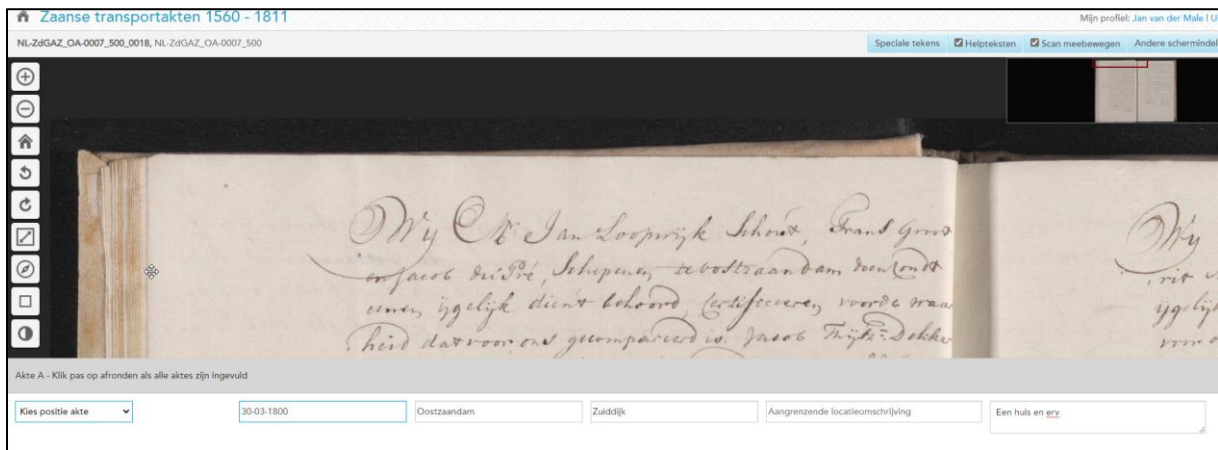 Zaanse transportakten 1560 - 1811
Mijn profiel: Jan van der Male | U
NL-ZdGAZ_OA-0007_500_0018, NL-ZdGAZ_OA-0007_500
Speciale tekens Helpteksten Scan meebewegen Andere schermindel
Wij Mr. Jan Loopwijk Schout, Frans Groot
en Jacob du Pré, Schepenen, te Oostzaandam doen Condt
eenen ijgelijk dient behoord, Certificeeren, voor de waar
heid dat voor ons gecompareerd is Jacob Thijsz. Dekker
Wij
rit
ijgelijk
voor o
Akte A - Klik pas op afronden als alle aktes zijn ingevuld
Kies positie akte
30-03-1800
Oostzaandam
Zuiddijk
Aangrenzende locatieomschrijving
Een huis en erv